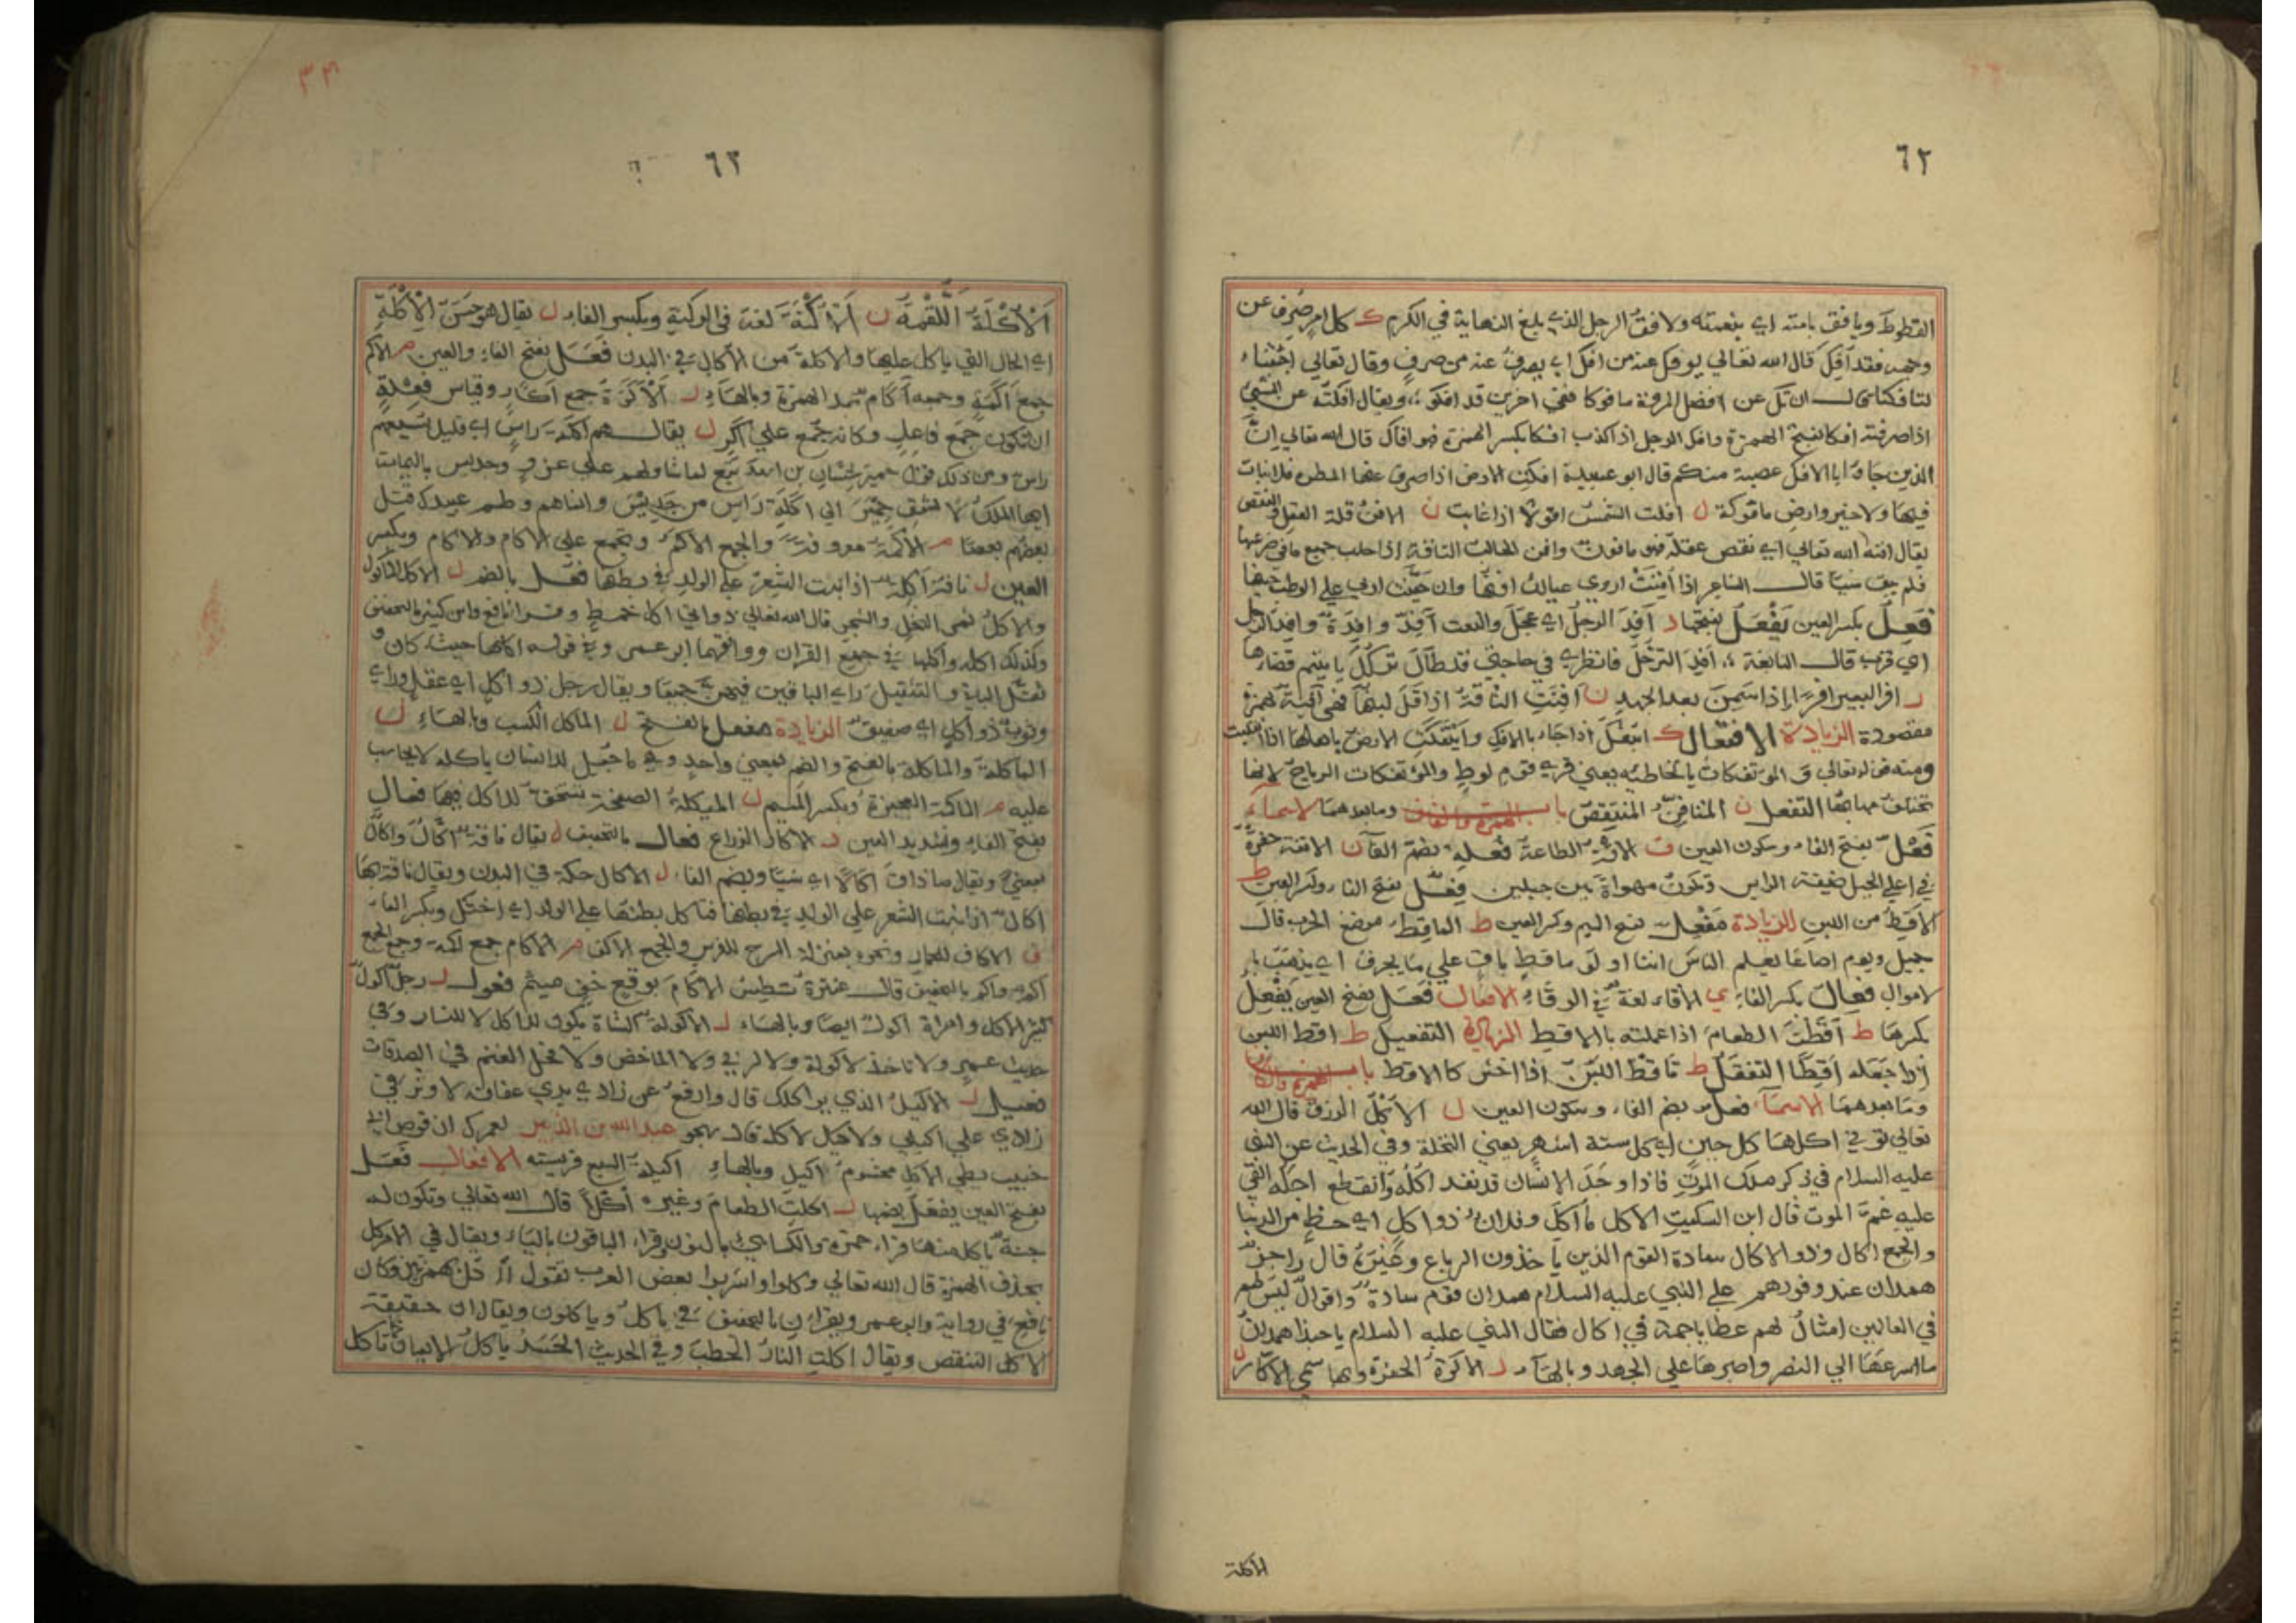 ٦٢
القطوط ويافق بامته اي بنعمته ولافق الرجل الذي بلغ النهاية في الكرم ك كل امر صرف عن
وجهه فقد افك قال الله تعالى يوفك عنه من افك اي يصرف عنه من صرف وقال تعالى اجئتنا
لتافكنا ان تك عن افضل المروة مافوكا ففي اخرين قد افكوا ويقال افكته عن الشي
اذا صرفته افكا بفتح الهمزة وافك الرجل اذا كذب افكا بكسر الهمزة فهو افاك قال الله تعالى ان
الذين جاوا بالافك عصبة منكم قال ابو عبيدة افكت الارض اذا صرف عنها المطر فلا نبات
فيها ولا خير وارض مافوكة ل افلت الشمس افولا اذا غابت ن الافن قلة العقل والنقص
يقال افنه الله تعالى اي نقص عقله فهو مافون وافن الحالب الناقة اذا حلب جميع ما في ضرعها
فلم يبق شيا قال الشاعر اذا افنت اروي عيالك افنها وان حينت اربي على الوطب حينها
فعل بكسر العين يفعل بفتحها د افد الرجل اي عجل والنعت افد وافدة وافد الرحيل
اي قرب قال النابغة افد الترحل فانظري في حاجتي قد طال تركك يا بثينم قضارها
ر افر البعير افرا اذا سمن بعد الجهد ن افنت الناقة اذا قل لبنها فهي افنة بهمزة
مقصورة الزيادة الافتعال ك ايتفك اذا جاء بالافك وايتفكت الارض باهلها اذا انقلبت
ومنه قوله تعالى والموتفكات بالخاطئه يعني قري قوم لوط والموتفكات الرياح لانها
تختلف مهابها التفعل ن المتافن المنتقص باب الهمزة والقاف وما بعدهما الاسماء
فعل بفتح الفاء وسكون العين ق الاقه الطاعة فعله بضم الفا ن الاقنة حفرة
في اعلي الجبل ضيقة الراس وتكون مهواة بين جبلين فعل بفتح الفاء وكسر العين ط
الاقط من اللبن الزيادة مفعل بفتح الميم وكسر العين ط الماقط موضع الحرب قال
جميل ويوم اضاعا يعلم الناس اننا اولو ماقط باق علي ما يجرف اي يذهب با
لاموال فعال بكسر الفاء ي الاقاء لغة في الوقاء الافعال فعل بفتح العين يفعل
بكسرها ط اقطت الطعام اذا عملته بالاقط الزيادة التفعيل ط اقط اللبن
اذا جعله اقطا التفعل ط تاقط اللبن اذا اخثر كالاقط باب الهمزة والكاف
وما بعدهما الاسماء فعل بضم الفاء وسكون العين ل الاكل الرزق قال الله
تعالى توتي اكلها كل حين اي كل ستة اشهر يعني النخلة وفي الحديث عن النبي
عليه السلام في ذكر ملك الموت فاذا وجد الانسان قد نفد اكله وانقطع اجله القي
عليه غم الموت قال ابن السكيت الاكل ما اكل وفلان ذو اكل اي حظ من الدنيا
والجمع اكال وذو الاكال سادة القوم الذين ياخذون الرباع وغيره قال راجز
همدان عند وفودهم علي النبي عليه السلام همدان قوم سادة واقوال ليس لهم
في العالمين امثال لهم عطايا جمة في اكال فقال النبي عليه السلام يا حبذا همدان
ما اسرعها الي النصر واصبرها علي الجهد وبالهاء ر الاكرة الحفرة وبها سمي الاكار ل
الاكلة
٦٣
الاكلة اللقمة ن الاكنة لغة في الوكنة وبكسر الفاء ل يقال هو حسن الاكلة
اي الحال التي ياكل عليها والاكلة من الاكال في البدن فعل بفتح الفاء والعين م الاكم
جمع اكمة وجمعه اكام بمد الهمزة وبالهاء ر الاكرة جمع اكار وقياس فعلة
ان تكون جمع فاعل وكانه جمع علي اكر ل يقال هم اكلة راس اي قليل يشبعهم
راس ومن ذلك قول حمير لحسان بن اسعد تبع لما شاورهم علي غزو جديس باليمامة
ايها الملك لا تسق حمير الي اكلة راس من جديس وانما هم وطسم عبيدك قتل
بعضهم بعضا م الاكمة معروفة والجمع الاكم وتجمع علي الاكام والاكام وبكسر
العين ل ناقة اكلة اذا نبت الشعر علي الولد في بطنها فعل بالضم ل الاكل الماكول
والاكل ثمر النخل والشجر قال الله تعالى ذواتي اكل خمط وقرا نافع وابن كثير بالتخفيف
وكذلك اكله واكلها في جميع القران ووافقهما ابو عمرو في قوله اكلها حيث كان و
ثقل الباقي والتثقيل راي الباقين فيهن جميعا ويقال رجل ذو اكل اي عقل وراي
وثوب ذو اكل اي صفيق الزيادة مفعل بالفتح ل الماكل الكسب وبالهاء ل
الماكلة والماكلة بالفتح والضم بمعني واحد وهي ما جعل للانسان ياكله لا يحاسب
عليه م الماكمة العجيزة وبكسر الميم ل الميكلة الصفحة تستحق للاكل فيها فعال
بفتح الفاء وتشديد العين ر الاكار الزراع فعال بالتخفيف ل يقال ناقة اكال واكال
بمعني ويقال ما ذاق اكالا اي شيا وبضم الفاء ل الاكال حكة في البدن ويقال ناقة بها
اكال اذا نبت الشعر علي الولد في بطنها فتاكل بطنها علي الولد اي اختل وبكسر الفاء
ف الاكاف للحمار ونحوه بمنزلة السرج للفرس والجمع الاكف م الاكام جمع اكمة وجمع الجمع
اكم واكم بالتخفيف قال عنترة تطس الاكام بوقع خف ميثم فعول ل رجل اكول
كثير الاكل وامراة اكول ايضا وبالهاء ل الاكولة الشاة يكون للاكل لا للنسار وفي
حديث عمر ولا تاخذ الاكولة ولا الربي ولا الماخض ولا فحل الغنم في الصدقات
فعيل ل الاكيل الذي يواكلك قال وارفع عن زادي يدي عفافة لاوثر في
زادي علي اكيلي والاكيل الاكل قال يهجو عبد الله بن الزبير لعمرك ان قرص ابي
خبيب بطي الاكل محشوم اكيل وبالهاء اكيلة السبع فريسته الافعال فعل
بفتح العين يفعل بضمها ل اكلت الطعام وغيره اكلا قال الله تعالى وتكون له
جنة ياكل منها قراء حمزة والكسائي بالنون وقراء الباقون بالياء ويقال في الامر كل
بحذف الهمزة قال الله تعالى وكلوا واشربوا بعض العرب تقول اءكل بهمزتين وكان
نافع في رواية وابو عمرو يقران بالتخفيف في ياكل وياكلون ويقال ان حقيقة
الاكل التنقص ويقال اكلت النار الحطب وفي الحديث الحسد ياكل الايمان كما تاكل